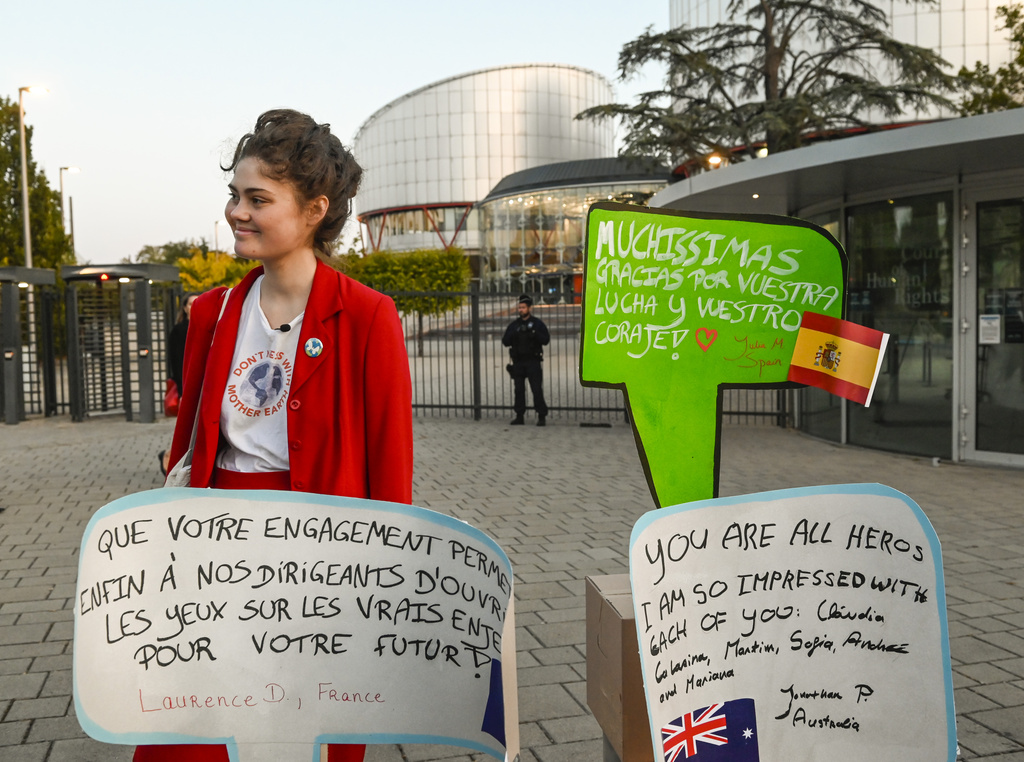 DON'T MESS WITH
MOTHER EARTH
MUCHISSIMAS
GRACIAS POR VUESTRA
LUCHA Y VUESTRO
CORAJE!
Julia M.
Spain
Court
Human
Rights
QUE VOTRE ENGAGEMENT PERME
ENFIN À NOS DIRIGEANTS D'OUVR
LES YEUX SUR LES VRAIS ENJE
POUR VOTRE FUTUR!
Laurence D., France
YOU ARE ALL HEROS
I AM SO IMPRESSED WITH
EACH OF YOU: Cláudia
Catarina, Martim, Sofia, André
and Mariana
Jonathan P.
Australia